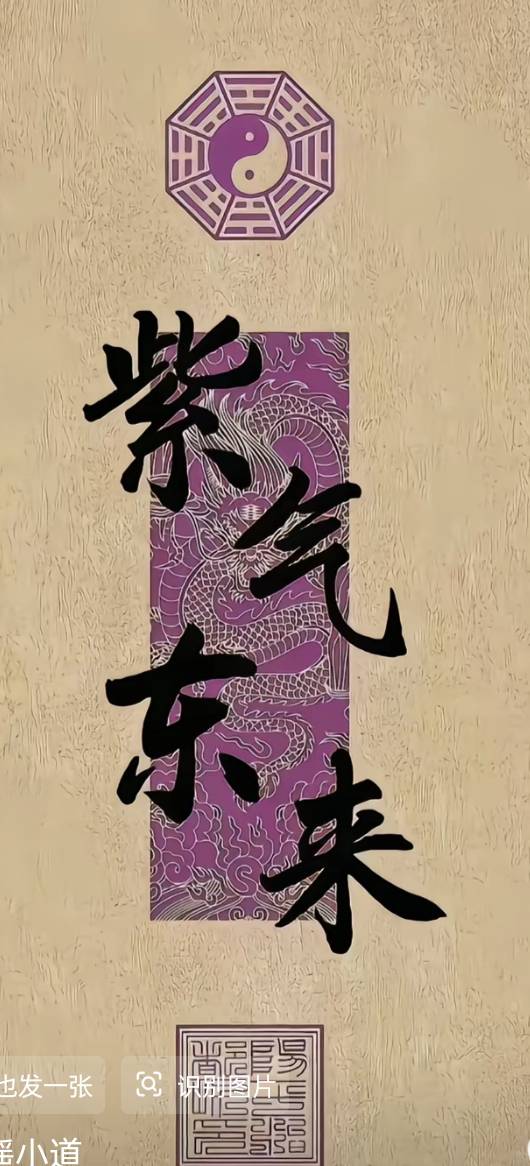 紫气东来
也发一张
识别图片
瑶小道